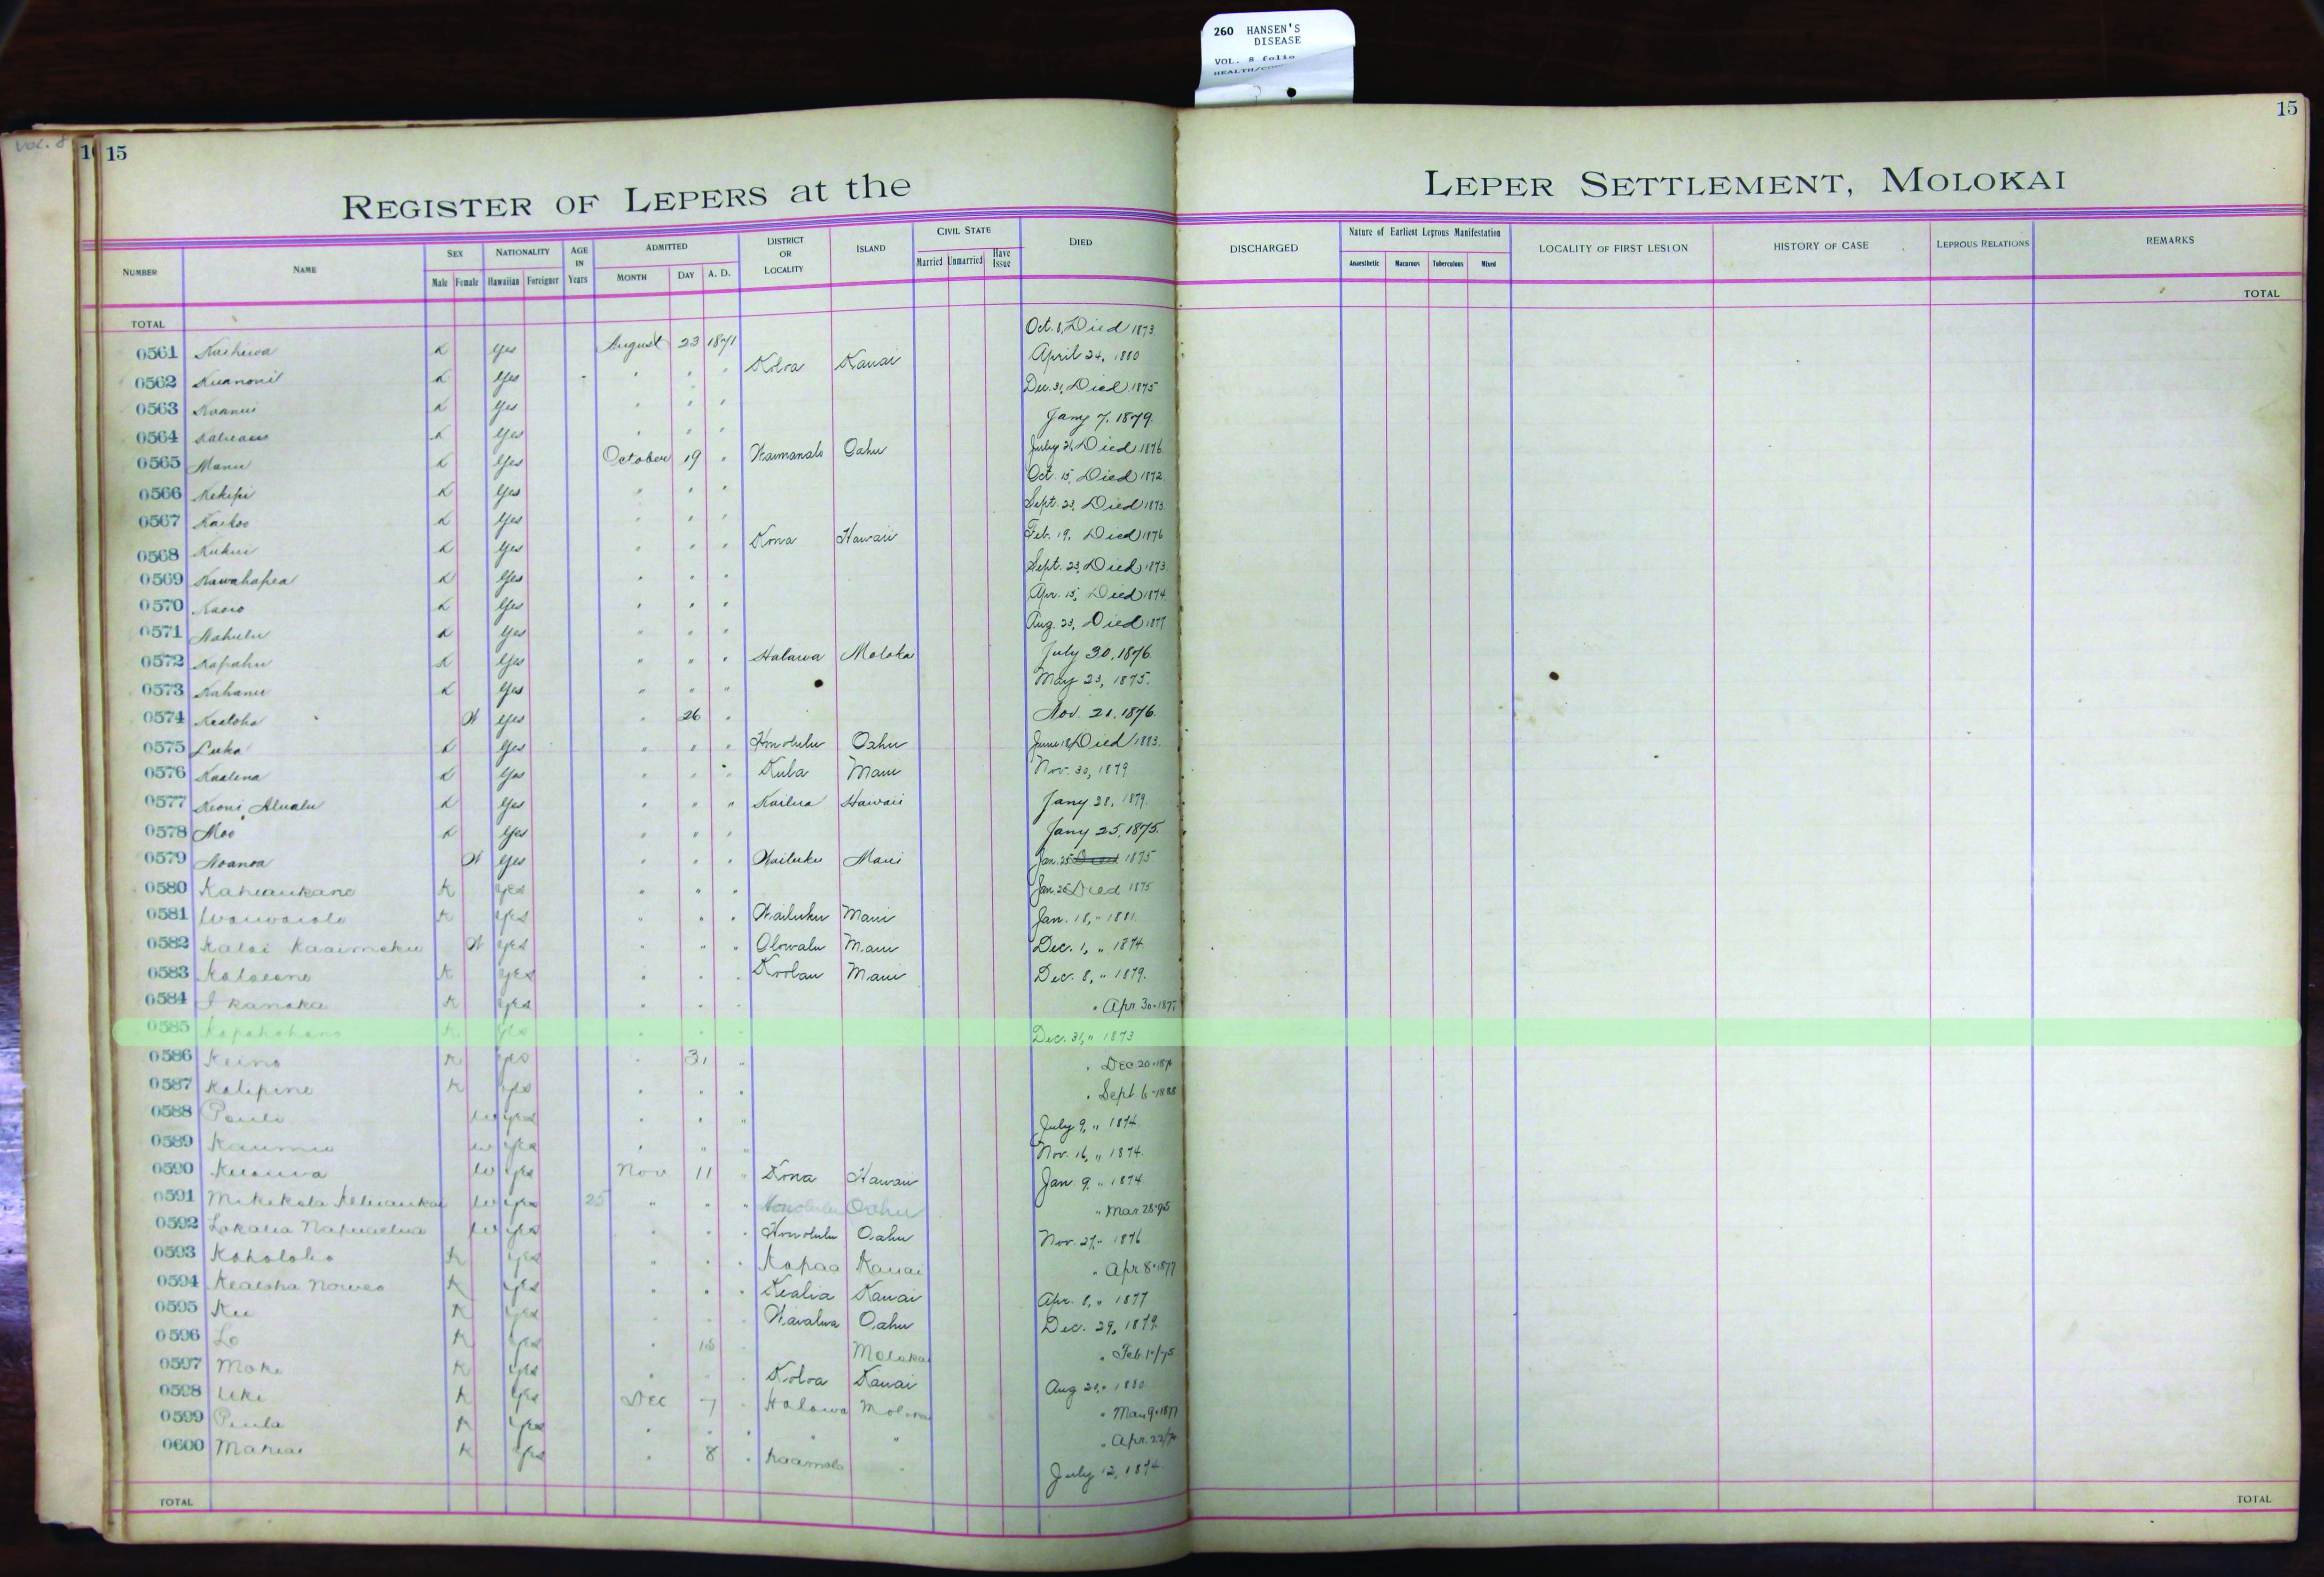 260 HANSEN'S
DISEASE
VOL. 8 folio
VOL. 8
15
15
REGISTER OF LEPERS at the
LEPER SETTLEMENT, MOLOKAI
NUMBER NAME SEX Male Female NATIONALITY Hawaiian Foreigner AGE IN Years ADMITTED MONTH DAY A. D. DISTRICT OR LOCALITY ISLAND CIVIL STATE Married Unmarried Have Issue DIED DISCHARGED Nature of Earliest Leprous Manifestation Anaesthetic Macurous Tuberculous Mixed LOCALITY OF FIRST LESION HISTORY OF CASE LEPROUS RELATIONS REMARKS
TOTAL TOTAL
0561 K Yes August 23 1871 Oct. 8, Died 1873
0562 Kuanoni K Yes " " " Koloa Kauai April 24, 1880
0563 K Yes " " " Dec. 31, Died 1875
0564 K Yes " " " Jany 7, 1879.
0565 Manu K Yes October 19 " Waimanalo Oahu July 21, Died 1876
0566 Kekipi K Yes " " " Oct. 15, Died 1872
0567 Kaikoo K Yes " " " Sept. 23, Died 1873
0568 Kukui K Yes " " " Kona Hawaii Feb. 19, Died 1876
0569 Kawahapea K Yes " " " Sept. 23, Died 1873
0570 K Yes " " " Apr. 15, Died 1874
0571 Nahulu K Yes " " " Aug. 23, Died 1877
0572 Kapahu K Yes " " " Halawa Moloka July 30, 1876
0573 Kahanu K Yes " " " May 23, 1875.
0574 Kealoha W Yes " 26 " Nov. 21, 1876.
0575 Luka K Yes " " " Honolulu Oahu June 18, Died 1883.
0576 Kaalena K Yes " " " Kula Maui Nov. 30, 1879
0577 Keoni Alualu K Yes " " " Kailua Hawaii Jany 28, 1879.
0578 Moo K Yes " " " Jany 25, 1875.
0579 Noanoa W Yes " " " Wailuku Maui Jan. 25 Died 1875
0580 Kahaukane K Yes " " " Jan. 25 Died 1875
0581 Waiwaiole K Yes " " " Wailuku Maui Jan. 18, " 1881.
0582 Kalai Kaaimoku W Yes " " " Olowalu Maui Dec. 1, " 1874
0583 K Yes " " " Koolau Maui Dec. 8, " 1879.
0584 I kanaka K Yes " " " " Apr. 30. 1877
0585 Kapahohano K Yes " " " Dec. 31, " 1873
0586 Keino K Yes " 31 " " Dec. 20.
0587 Kalipine K Yes " " " " Sept 6-1888
0588 Pauli W Yes " " " July 9, " 1874
0589 Kaumu W Yes " " " Nov. 16, " 1874.
0590 W Yes Nov 11 " Kona Hawaii Jan. 9, " 1874
0591 Mikikala W Yes 25 " " " Honolulu Oahu " Mar. 28-95
0592 Lokalia W Yes " " " Honolulu Oahu Nov. 27, " 1876
0593 Kahololio K Yes " " " Kapaa Kauai " Apr 8. 1877
0594 Kealoha K Yes " " " Kealia Kauai Apr. 8, " 1877
0595 Ku K Yes " " " Waialua Oahu Dec. 29, 1879.
0596 Lo K Yes " 18 " Molokai " Feb. 1"/75
0597 Moke K Yes " " " Koloa Kauai Aug 21, " 1880
0598 Uki K Yes Dec 7 " Halawa Molokai " Mar. 9. 1877
0599 Paula K Yes " " " " " " Apr. 22/
0600 Mahiai K Yes " 8 " Kaamola " July 12, 1874.
TOTAL TOTAL